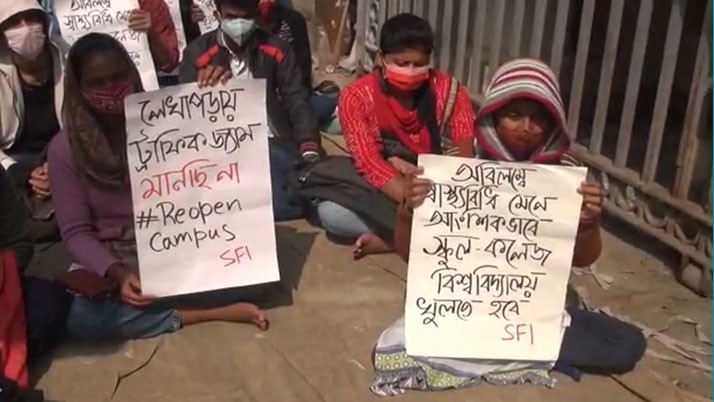 অবিলম্বে
স্বাস্থ্যবিধি মেনে
লেখাপড়ায়
ট্রাফিক জ্যাম
মানছি না
#Reopen
Campus
SFI
অবিলম্বে
স্বাস্থ্যবিধি মেনে
আংশিক ভাবে
স্কুল-কলেজ
বিশ্ববিদ্যালয়
খুলতে হবে
SFI